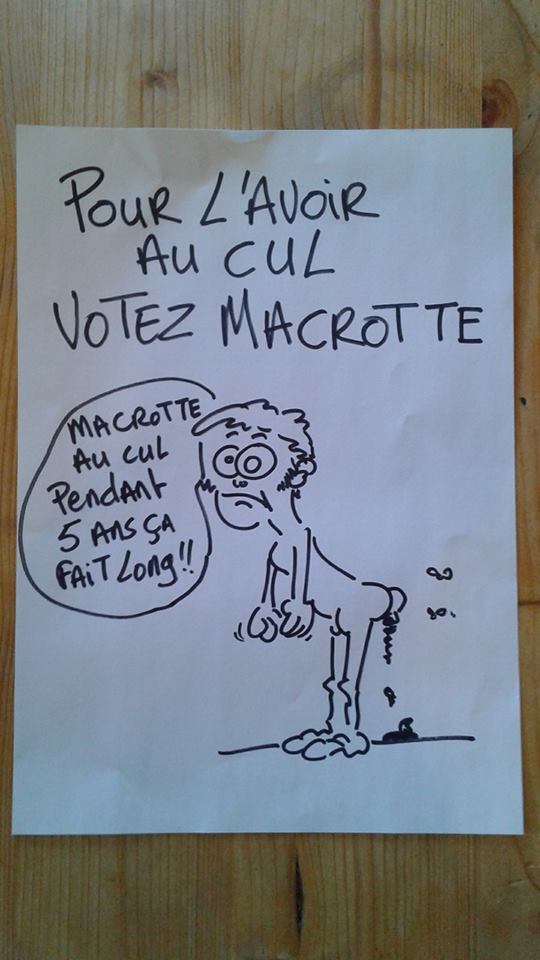 POUR L'AVOIR
AU CUL
VOTEZ MACROTTE
MACROTTE
AU CUL
PENDANT
5 ANS ÇA
FAIT LONG!!